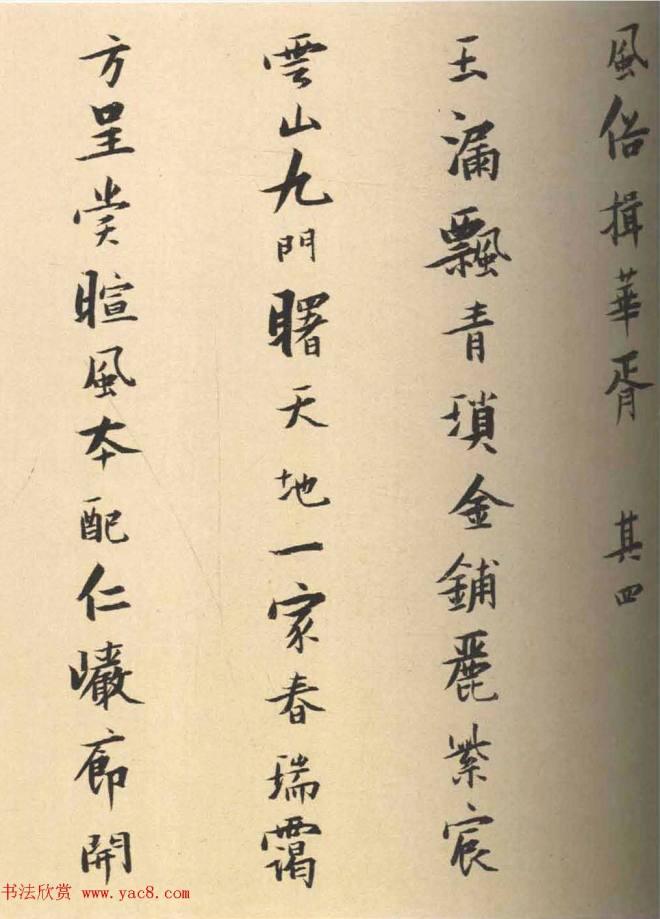 風俗揖華胥 其四
玉漏飄青瑣金鋪麗紫宸
雲山九門曙天地一家春瑞靄
方呈賞暄風本配仁巖廊開
书法欣赏 …www.yac8.com